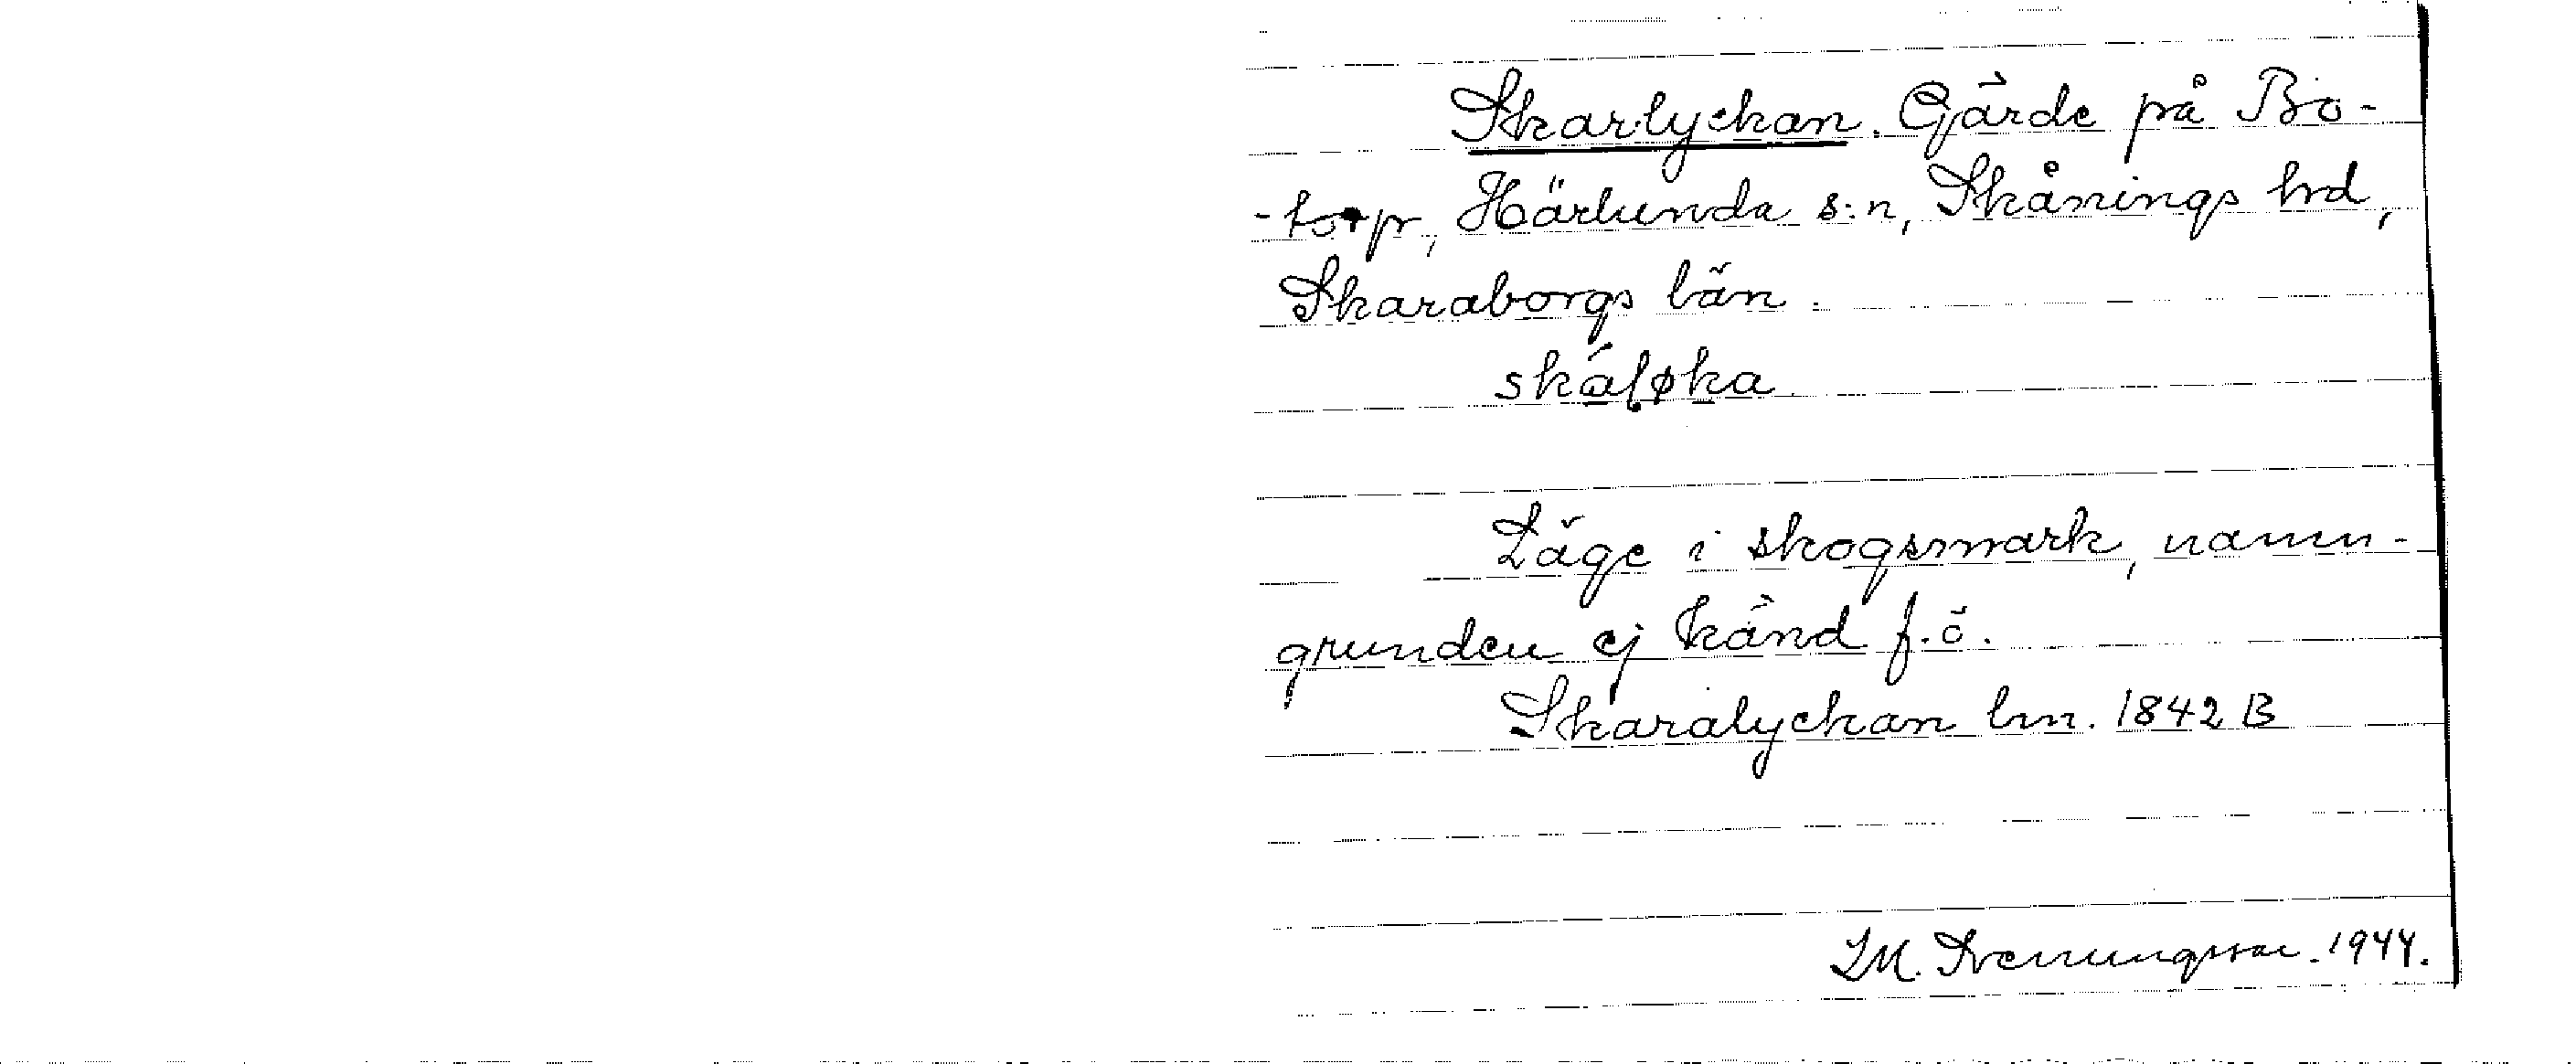 Skarlyckan. Gärde på Bo-
-torp, Härlunda s:n, Skånings hrd,
Skaraborgs län.
skálφka
Läge i skogsmark, namn-
grunden ej känd f.ö.
Skaralyckan lm. 1842 B
Svenungsson. 1944.